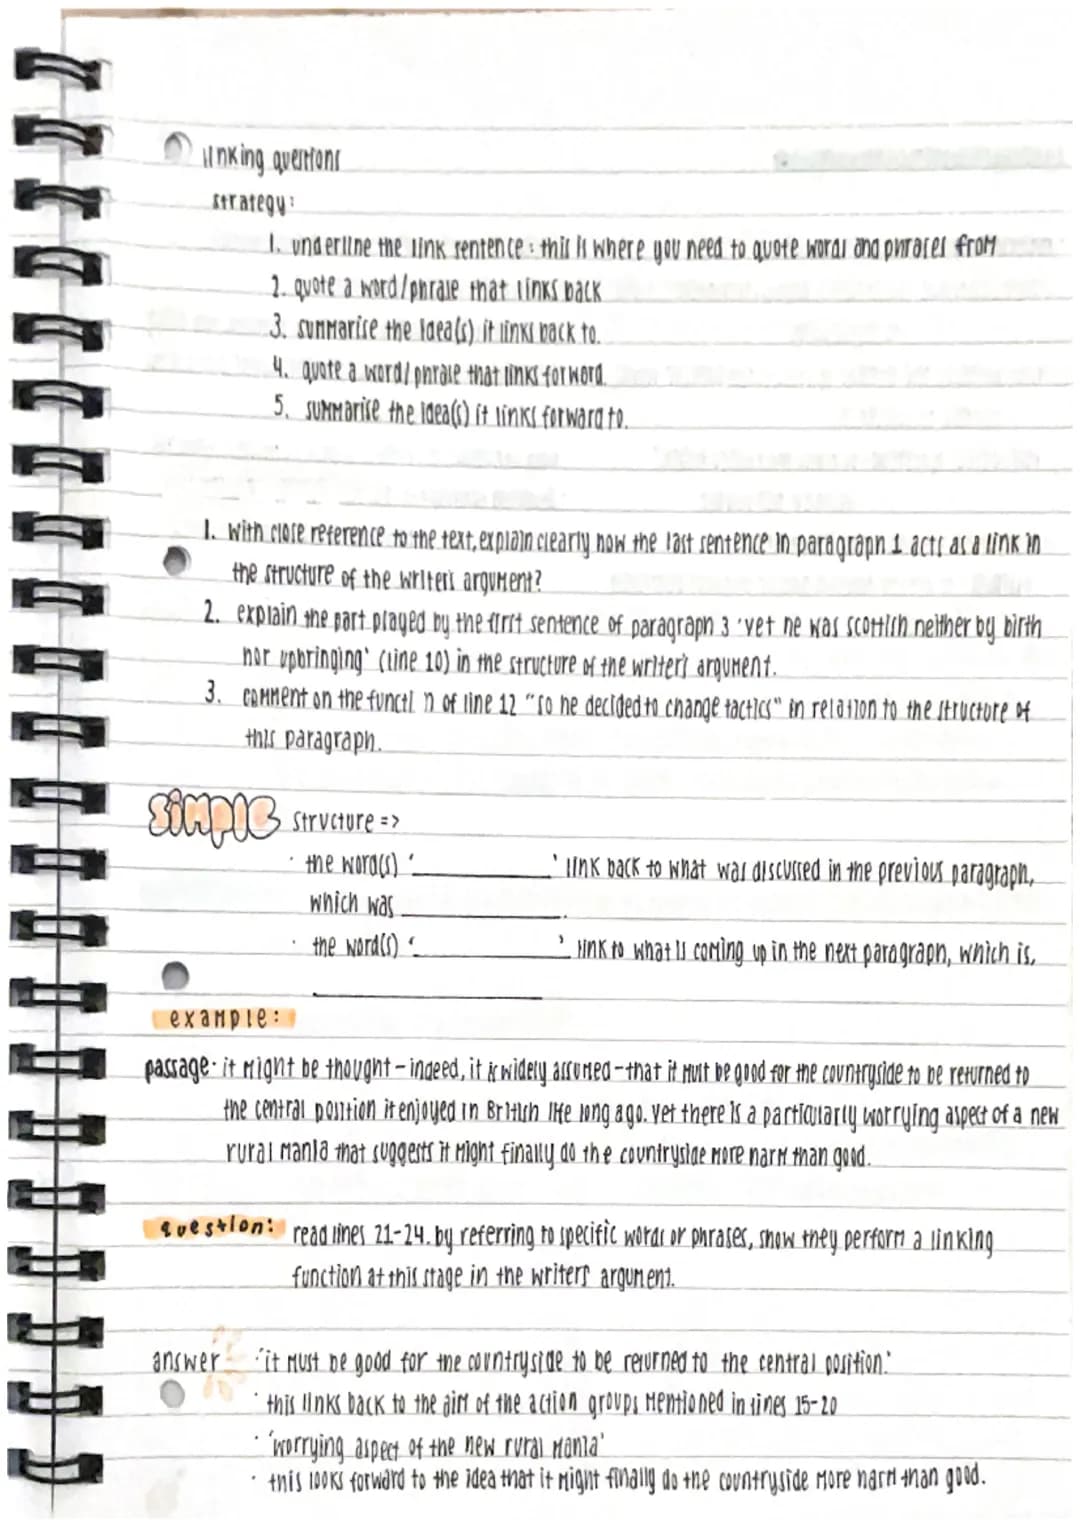 linking questions
strategy:
1. underline the link sentence : this is where you need to quote words and phrases from
2. quote a word/phrase that links back
3. summarise the idea(s) it links back to.
4. quote a word/phrase that links forword.
5. summarise the idea(s) it links forward to.
1. with close reference to the text, explain clearly how the last sentence in paragraph 1 acts as a link in
the structure of the writer's argument?
2. explain the part played by the first sentence of paragraph 3 'yet he was scottish neither by birth
nor upbringing' (line 10) in the structure of the writer's argument.
3. comment on the functi n of line 12 "so he decided to change tactics" in relation to the structure of
this paragraph.
simple structure =>
· the word(s) '__________' link back to what was discussed in the previous paragraph,
which was __________.
· the word(s) '__________' link to what is coming up in the next paragraph, which is,
__________
example:
passage· it might be thought – indeed, it is widely assumed – that it must be good for the countryside to be returned to
the central position it enjoyed in British life long ago. yet there is a particularly worrying aspect of a new
rural mania that suggests it might finally do the countryside more harm than good.
question: read lines 21-24. by referring to specific words or phrases, show they perform a linking
function at this stage in the writers argument.
answer · 'it must be good for the countryside to be returned to the central position.'
· this links back to the aim of the action groups mentioned in lines 15-20
· 'worrying aspect of the new rural mania'
· this looks forward to the idea that it might finally do the countryside more harm than good.